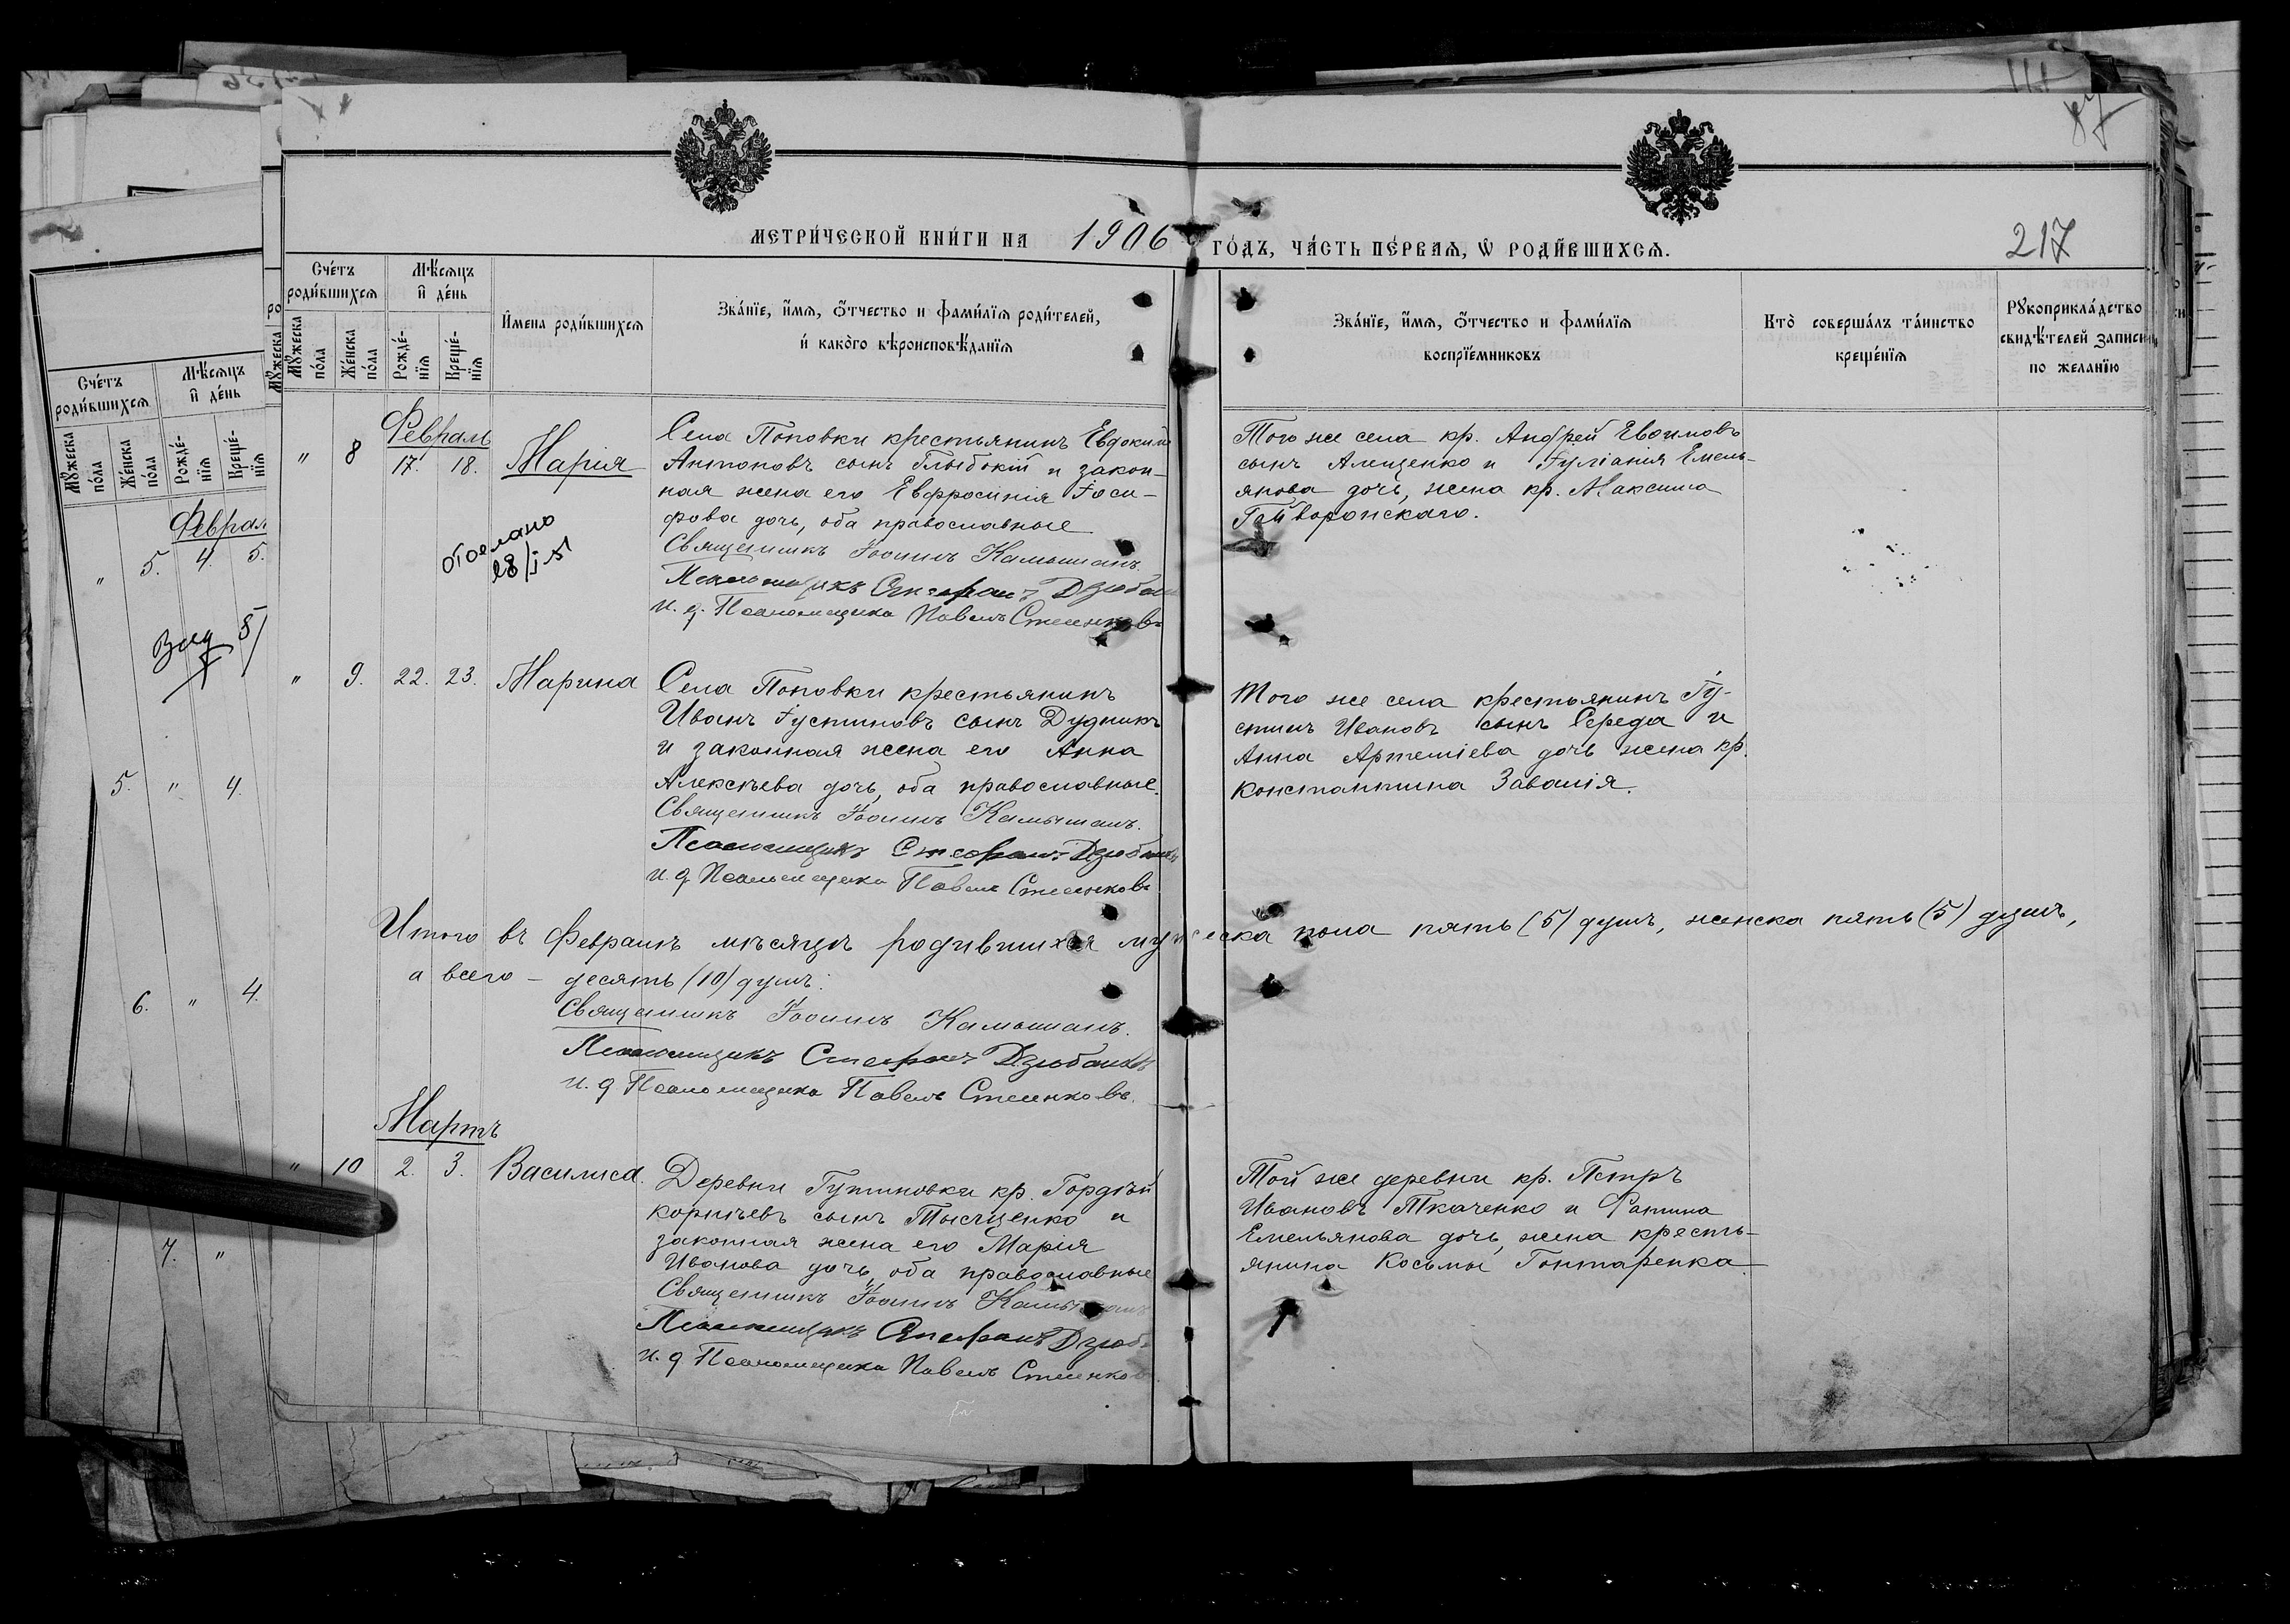 МЕТРИ́ЧЕСКОЙ КНИ́ГИ НА 1906 ГО́ДЪ, ЧА́СТЬ ПЕ́РВАѦ, Ѡ РОДИ́ВШИХСѦ.
217
Сче́тъ роди́вшихсѧ
Мѣ́сѧцъ и҆ де́нь
Мꙋ́жеска по́ла
Же́нска по́ла
Рожде́нїѧ
Креще́нїѧ
И҆мена роди́вшихсѧ
Зва́нїе, и҆́мѧ, ѻ҆́тчество и фами́лїѧ роди́телей,
и҆ како́гѡ вѣроисповѣ́данїѧ
Зва́нїе, и҆́мѧ, ѻ҆́тчество и фами́лїѧ
воспрїе́мниковъ
Кто̀ соверша́лъ та́инство
креще́нїѧ
Рꙋкоприкла́дство
свидѣ́телей записи
по жела́нїю
Февраль
" 8 17. 18. Марія
Села Поповки крестьянинъ Евдокимъ
Антоновъ сынъ Глыбокій и закон-
ная жена его Евфросинія Іоси-
фова дочь, оба православные
Священникъ Іоаннъ Камышанъ.
Псаломщикъ Стефанъ Дзюбан
и. д. Псаломщика Павелъ Стеенковъ
Того же села кр. Андрей Евѳимовъ
сынъ Алещенко и Іуліанія Емель-
янова дочь, жена кр. Максима
Гайворонскаго.
отослано
28/I-51
" 9. 22. 23. Марина
Села Поповки крестьянинъ
Иванъ Іустиновъ сынъ Дудникъ
и законная жена его Анна
Алексѣева дочь, оба православные.
Священникъ Іоаннъ Камышанъ.
Псаломщикъ Стефанъ Дзюбан
и. д Псаломщика Павелъ Стеенковъ
Того же села крестьянинъ Іу-
стинъ Ивановъ сынъ Середа и
Анна Артеміева дочь жена кр.
Константина Завалія.
Итого въ Февралѣ мѣсяцѣ родившихся мужеска пола пять (5) душъ, женска пять (5) душъ,
а всего – десять (10) душъ.
Священникъ Іоаннъ Камышанъ.
Псаломщикъ Стефанъ Дзюбан
и. д Псаломщика Павелъ Стеенковъ.
Мартъ
" 10 2. 3. Василиса.
Деревни Гутиновки кр. Гордѣй
Корнѣевъ сынъ Тысяченко и
законная жена его Марія
Иванова дочь, оба православные
Священникъ Іоаннъ Камышанъ
Псаломщикъ Стефанъ Дзюб
и. д Псаломщика Павелъ Стеенков
Той же деревни кр. Петръ
Ивановъ Ткаченко и Фатина
Емельянова дочь, жена кресть-
янина Косьмы Гонтаренка.
Сче́тъ роди́вшихсѧ
Мѣ́сѧцъ и҆ де́нь
Мꙋ́жеска по́ла
Же́нска по́ла
Рожде́нїѧ
Креще́нїѧ
Феврал
" 5. 4. 5.
5. " 4.
6. " 4.
7. "